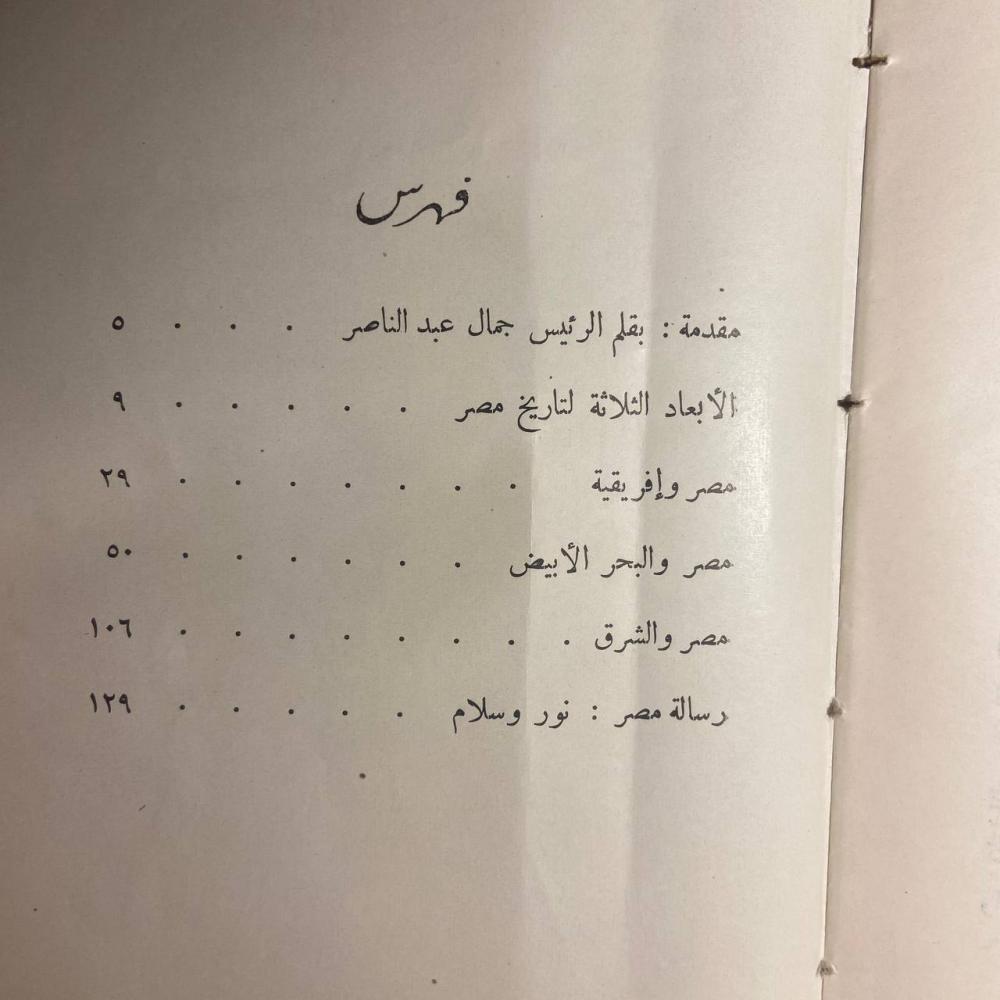 فهرس
مقدمة : بقلم الرئيس جمال عبد الناصر . . . ٥
الأبعاد الثلاثة لتاريخ مصر . . . . . ٩
مصر وإفريقية . . . . . . . ٢٩
مصر والبحر الأبيض . . . . . . ٥٠
مصر والشرق . . . . . . . . ١٠٦
رسالة مصر : نور وسلام . . . . . ١٢٩